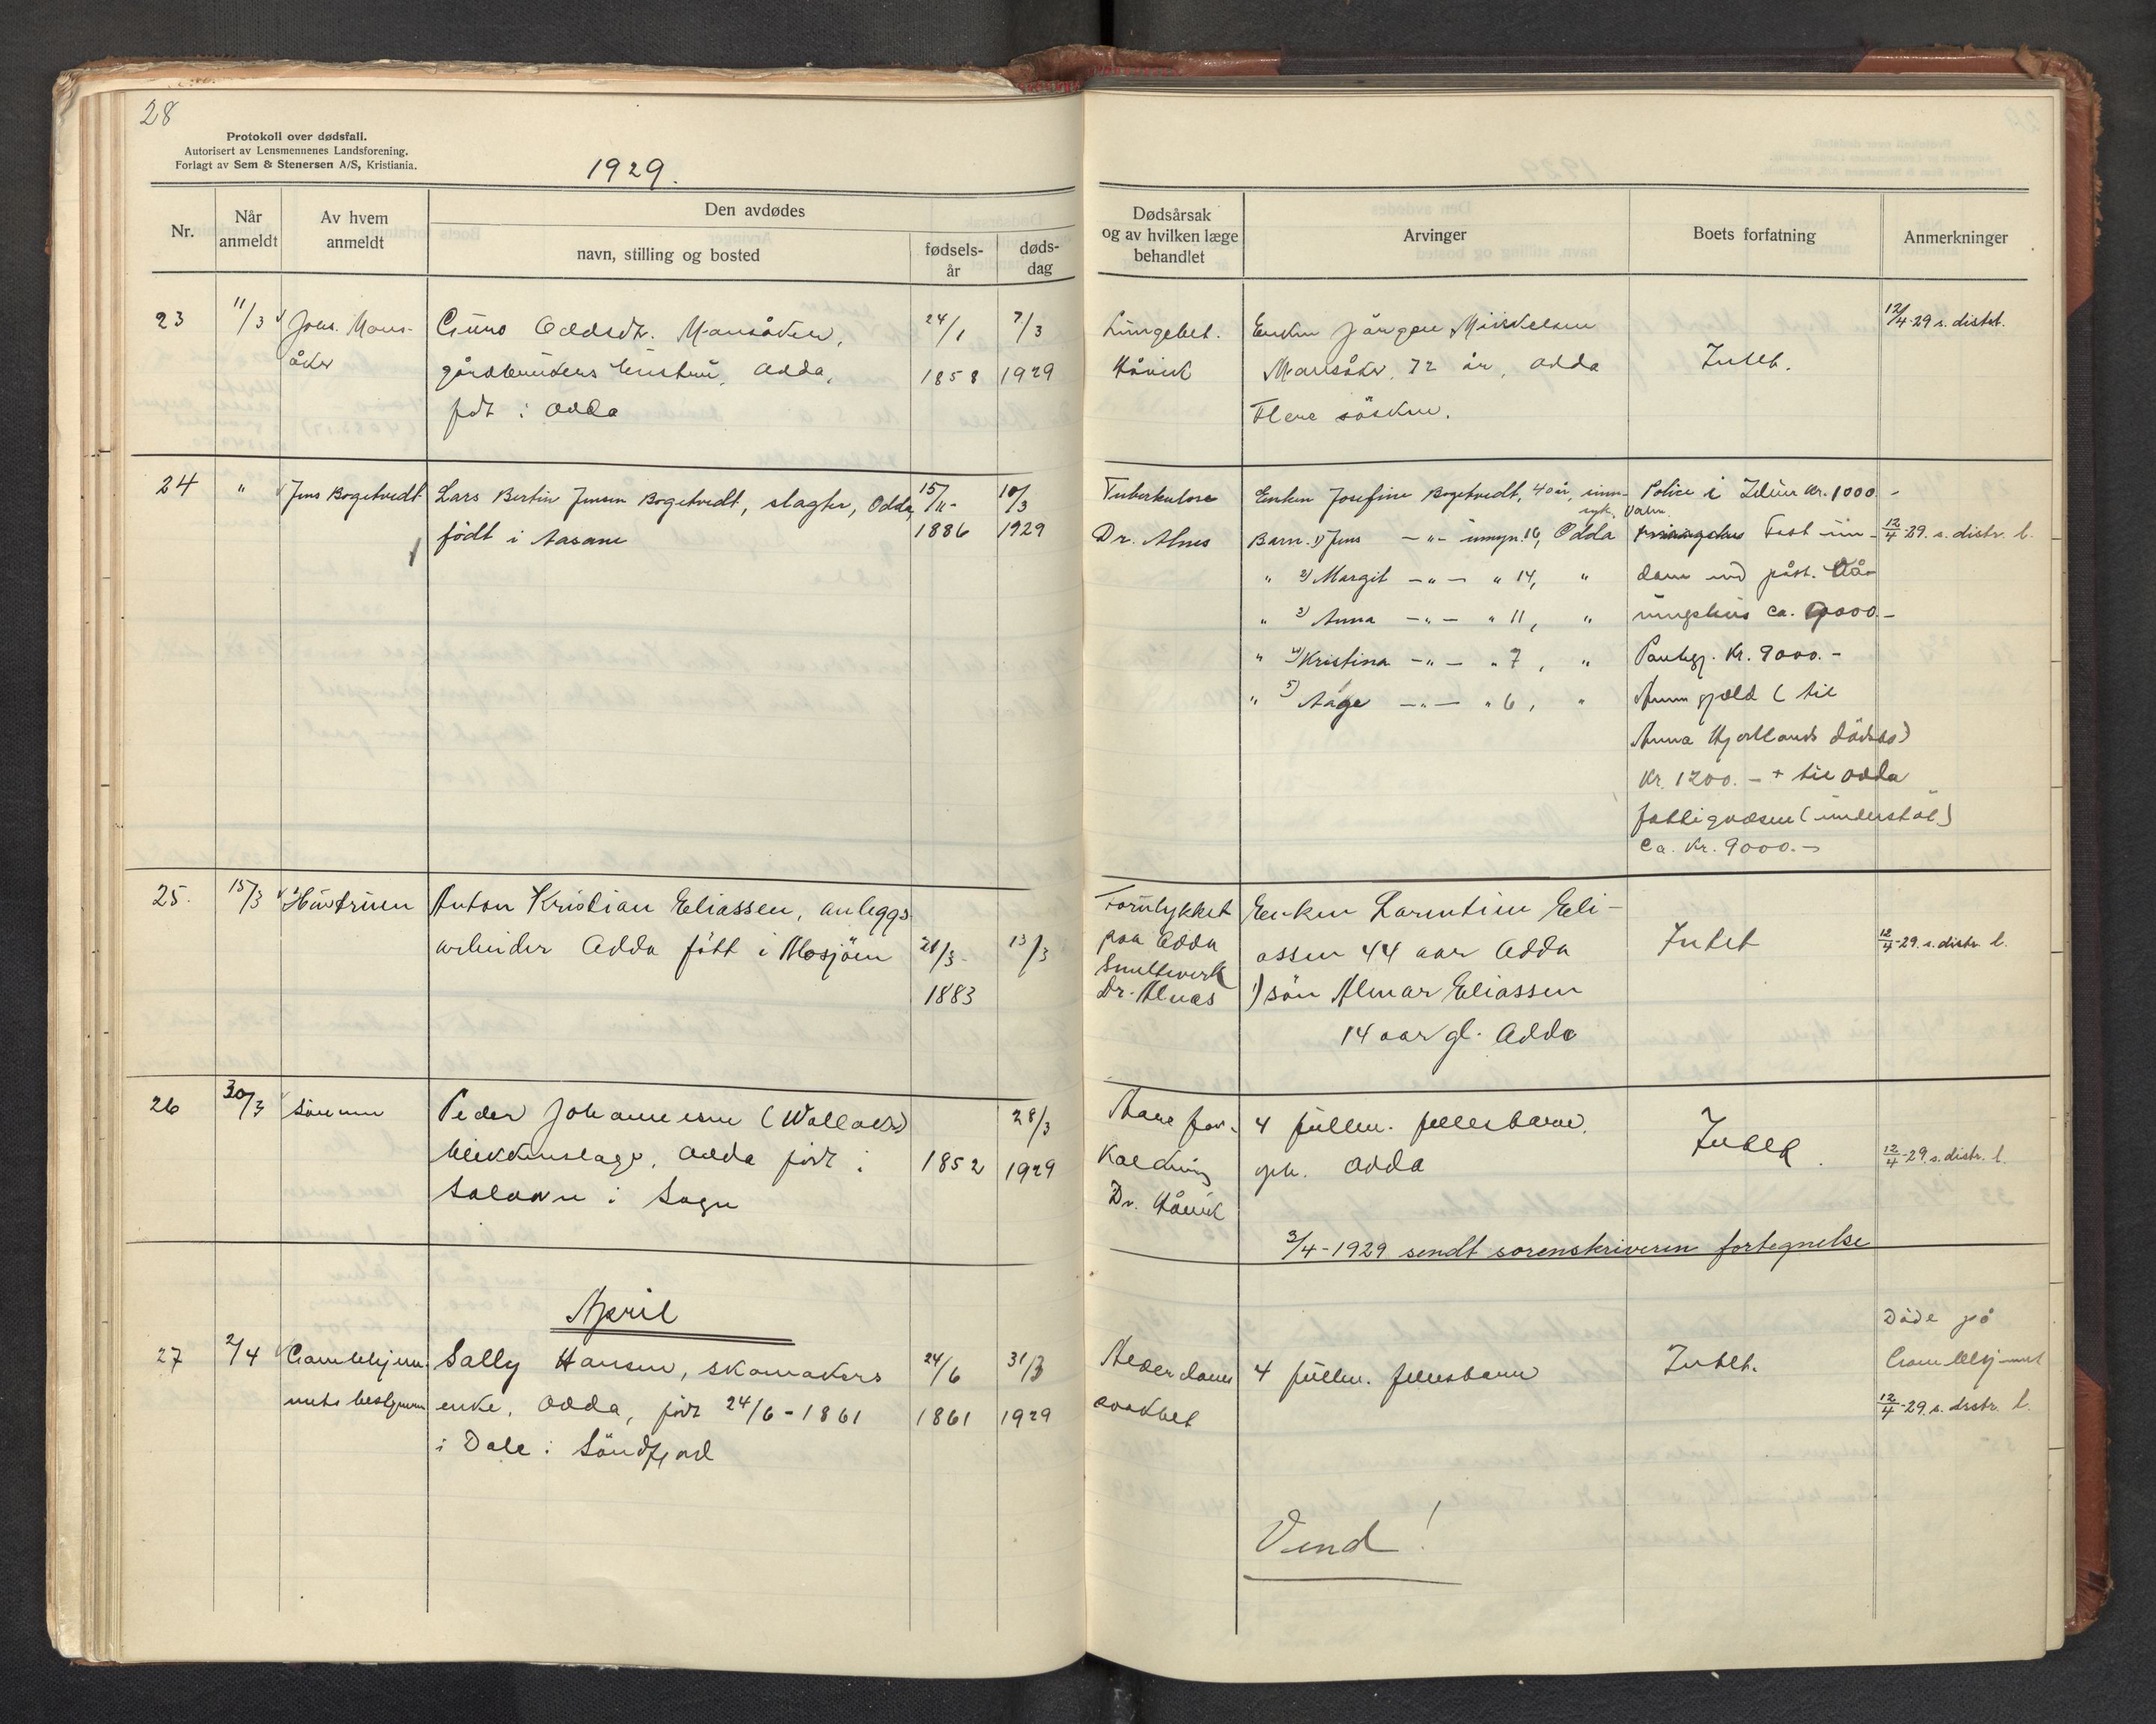 28
Protokoll over dødsfall.
Autorisert av Lensmennenes Landsforening.
Forlagt av Sem & Stenersen A/S, Kristiania.
1929.
Nr.
Når anmeldt
Av hvem anmeldt
Den avdødes
navn, stilling og bosted
fødsels-år
døds-dag
Dødsårsak
og av hvilken læge
behandlet
Arvinger
Boets forfatning
Anmerkninger
23 11/3 Johs. Mans- Guro Oddsdt. Mansåker, 24/1 7/3
åker gårdbrukers hustru, Odda, 1858 1929
født i Odda
Lungebet. Enkem. Jörgen Mikkelsen 12/4-29 s. distr.
Håvik Mansåker, 72 år, Odda Intet.
Flere søsken.
24 " Jens Bogetvedt Lars Bertin Jensen Bogetvedt, slagter, Odda, 15/11- 10/3
født i Aasane 1886 1929
Tuberkulose Enken Josefine Bogetvedt, 40 år, sinn- Police i Idun kr. 1000.-
syk, Valen
Dr. Alnes Barn 1) Jens -"- umyn. 16, Odda Fast ein- 12/4-29. s. distr. l.
" 2) Margit -"- " 14, " dom med påst. vå-
" 3) Anna -"- " 11, " ningshus ca. 9000.-
" 4) Kristina -"- " 7, " Pantegj. kr. 9000.-
" 5) Aage -"- " 6, " Annen gjeld ( til
Anna Hjortlands dödsbo)
kr. 1200.- + til Odda
fattigvæsen (understöt.)
ca. kr. 9000.-
25. 15/3 Hustruen Anton Kristian Eliassen, anleggs
arbeider Odda født i Mosjöen 21/3- 13/3
1883
Forulykket Enken Larentine Eli-
paa Odda assen 44 aar Odda Intet 12/4-29. s. distr. l.
Smelteverk
Dr. Alnæs 1) sön Almar Eliassen
14 aar gl. Odda
26 30/3 Sönnen Peder Johannesen (Wallads) 28/3
blikkenslager, Odda født i 1852 1929
Solavn i Sogn
Aare for- 4 fullm. fellesbarn. Intet.
kalkning gch. Odda 12/4-29. s. distr. l.
Dr. Håvik
3/4-1929 sendt sorenskriveren fortegnelse
April
27 2/4 Gamlehjem- Sally Hansen, skomakers 24/6 31/3
mets bestyrerinne enke, Odda, født 24/6-1861 1861 1929
i Dale i Söndfjord
Alderdoms 4 fullm. fellesbarn Intet. Døde på
svakhet Gamlehjemmet
12/4-29. s. distr. l.
Vend!